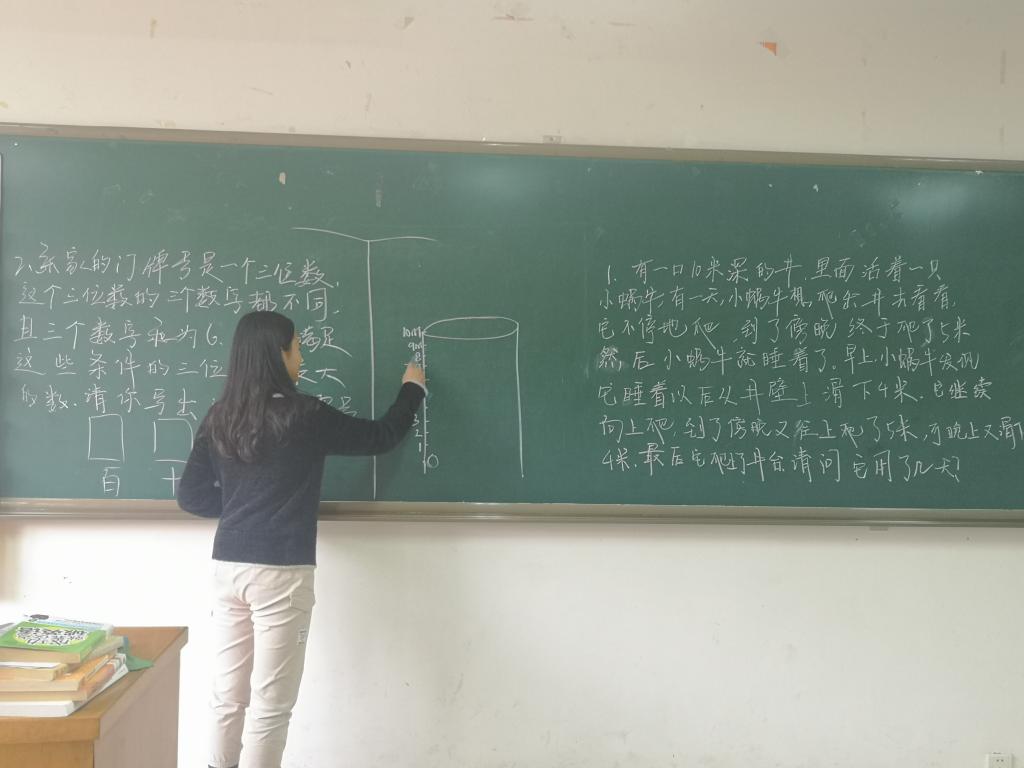 2、乐家的门牌号是一个三位数,
这个三位数的三个数字都不同,
且三个数字乘为6. 满足
这些条件的三位 大
的数.请你写出
百 十
10m
9m
8
3
2
1
0
1. 有一口10米深的井,里面活着一只
小蜗牛,有一天,小蜗牛想爬出井去看看,
它不停地爬,到了傍晚终于爬了5米
然后小蜗牛就睡着了.早上小蜗牛发现
它睡着以后从井壁上滑下4米.它继续
向上爬,到了傍晚又往上爬了5米,可晚上又滑
4米.最后它爬了井台,请问它用了几天?